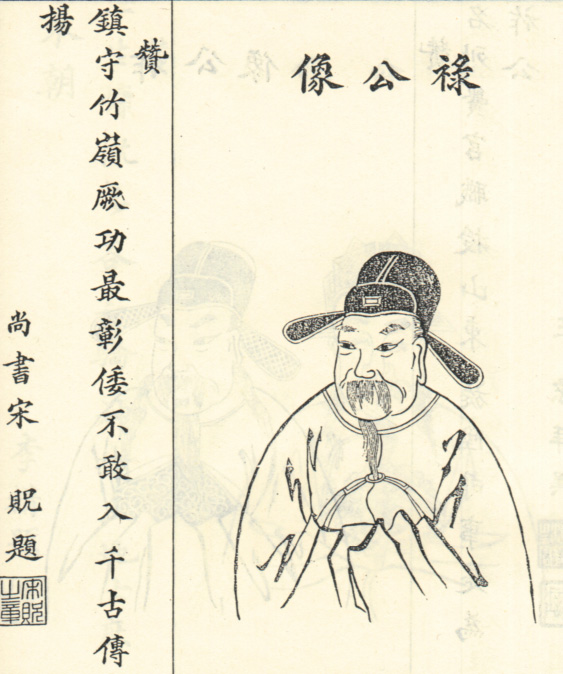 祿公像
贊
鎮守竹嶺厥功最彰倭不敢入千古傳
揚
尚書宋 貺題
宋貺
之章